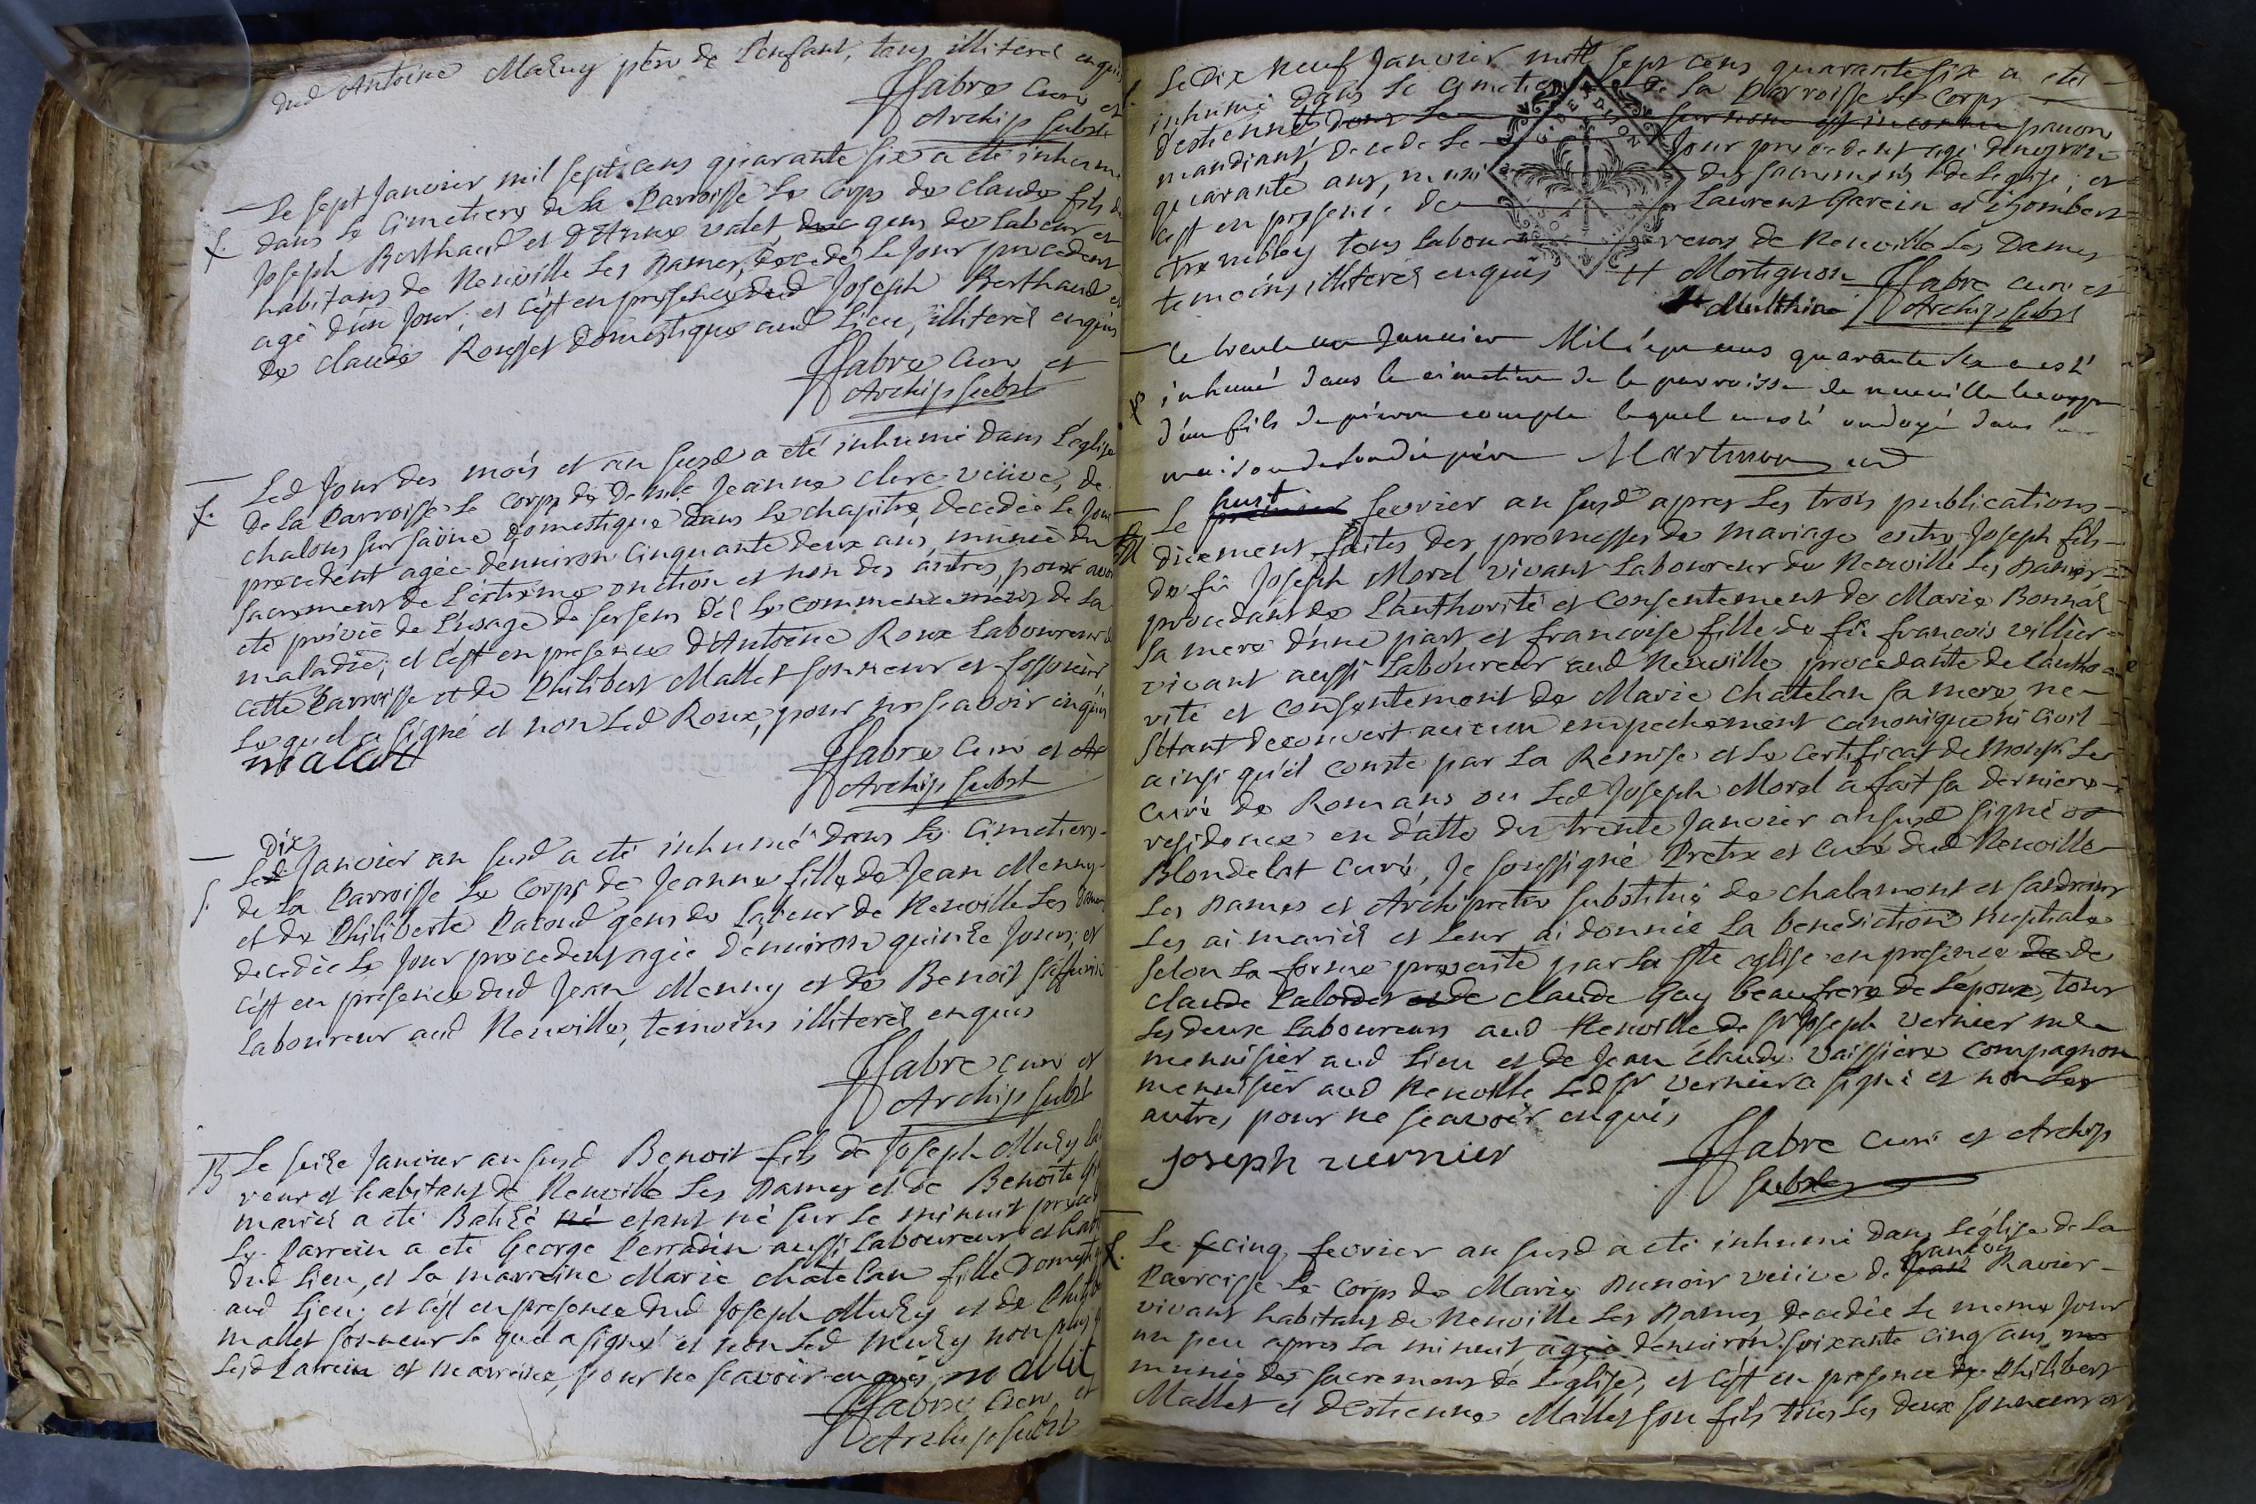 dud Antoine Mazuy père de l'enfant, tous illiteré enquis
ffabre curé et
Archip subst
Le sept Janvier mil sept cens quarante six a eté inhumé
dans le cimetiere de la Parroisse le corps de claude fils de
Joseph Berthaud et d'Anne valet gens de labeur et
habitans de Neuville les Dames, decedé le jour precedent
agé d'un jour; et c'est en presence dud Joseph Berthaud et
de claude Rousset domestique aud lieu, illiterés enquis
ffabre curé et
Archip subst
Led Jour des mois et an susd a eté inhumé dans l'eglise
de la Parroisse le corps de Jeanne clerc veuve, de
chalons sur saône domestique dans le chapitre, decedée le jour
precedent agée d'environ cinquante deux ans, munie du
sacrement de l'extreme onction et non des autres, pour avoir
eté privée de l'usage de ses sens dés le commencement de sa
maladie; et c'est en presence d'Antoine Roux Laboureur de
cette Parroisse et de Philibert Mallet sonneur et fossoieur
lequel a signé et non led Roux, pour ne scavoir enquis
malat
ffabre curé et Ar
Archip subst
dix
Le Janvier an susd a eté inhumé dans le cimetiere
de la Parroisse le corps de Jeanne fille de Jean Menny
et de Philiberte Patoud gens de labeur de Neuville les Dames
decedée le jour precedent agée d'environ quinze jours; et
c'est en presence dud Jean Menny et de Benoit
laboureur aud Neuville, temoins illiterés enquis
ffabre curé et
Archip subst
B Le seize Janvier an susd Benoit fils de Joseph Muzy la
reur et habitant de Neuville les Dames et de Benoite
mariés a eté Batizé né etant né sur le minuit
Le Parrein a eté George Perradin aussi laboureur et
dud lieu, et la marreine Marie chatelan fille Domestiq
aud lieu; et c'est en presence dud Joseph Muzy et de Philib
mallet sonneur lequel a signé et non led Muzy non plus q
lesd Parrein et marreine, pour ne scavoir enquis, mallit
ffabre curé et
Archip subst
Le Dix Neuf Janvier mil sept cens quarante six a eté
inhumé dans le cimetiere de la Parroisse le corps
d'estienne dans le surnom est inconnu pauvre
mandiant, decedé le jour precedent agé d'environ
quarante ans, muni des sacremens de l'eglise; et
c'est en presence de Laurent Garein et
Trembley tous labou reurs de Neuville les Dames
temoins illiterés enquis H Mortignon ffabre curé et
Archip subst
Le trente un Janvier Mil sept cens quarante six a esté
inhumé dans le cimetiere de la parroisse de neuville le corps
d'un fils de lequel a esté ondoyé dans la
maison de sondit père
Le huit premier fevrier an susd apres les trois publications
duement faites des promesses de mariage entre Joseph fils
de fû Joseph Morel vivant laboureur de Neuville les Dames
procedant de l'authorité et consentement de Marie Bonnal
sa mere d'une part et francoise fille de fû francois villier
vivant aussi laboureur aud Neuville, procedante de l'autho
rité et consentement de Marie chatelan sa mere ne
s'etant decouvert aucun empechement canonique ni civil
ainsi qu'il conste par la Remise et le certificat de Monsr le
curé de Romans ou led Joseph Morel a fait sa derniere
residence en datte du trente Janvier an susd signé
Blondelat curé, Je soussigné Pretre et curé dud Neuville
les Dames et Archipretre substitué de chalamont et sandrans
les ai mariés et leur ai donnée la benediction nuptiale
selon la forme prescrite par la ste eglise en presence de de
claude Palordet et de claude Guy beaufrere de l'epoux, tous
les deux laboureurs aud Neuville de sr Joseph vernier me
menuisier aud lieu et de Jean claude vaissiere compagnon
menuisier aud Neuville led sr vernier a signé et non les
autres, pour ne scavoir enquis
joseph vernier
ffabre curé et Archip
subst
Le cinq fevrier an susd a eté inhumé dans l'eglise de la
francois
Parroisse le corps de Marie Dunoir veuve de Jean Ravier
vivant habitans de Neuville les Dames decedée le meme jour
un peu apres la minuit agée d'environ soixante cinq ans,
munie des sacremens de l'eglise, et c'est en presence de Philibert
Mallet et d'Estienne Mallet son fils tous les deux sonneurs et